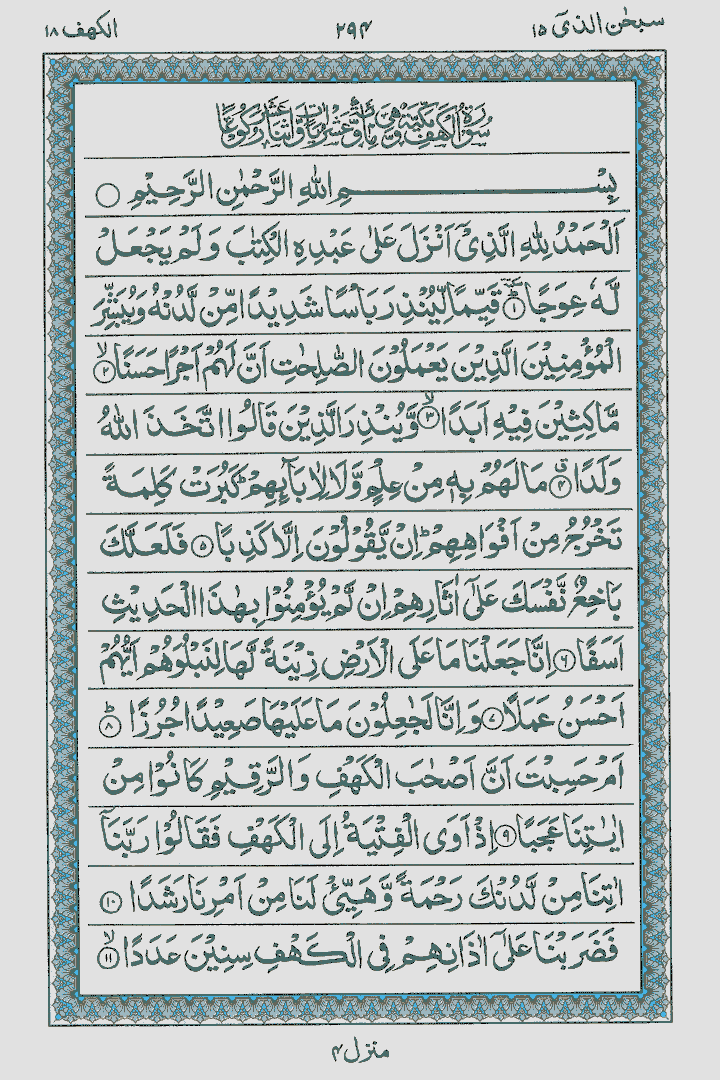 سبحٰن الذیٓ ۱۵
۲۹۴
الكهف ۱۸
سُوْرَةُ الْكَهْفِ مَكِّيَّةٌ وَّهِيَ مِائَةٌ وَّعَشْرُ اٰيَاتٍ وَّاثْنَا عَشَرَ رُكُوْعًا
بِسْمِ اللهِ الرَّحْمٰنِ الرَّحِيْمِ
اَلْحَمْدُ لِلّٰهِ الَّذِيْٓ اَنْزَلَ عَلٰى عَبْدِهِ الْكِتٰبَ وَلَمْ يَجْعَلْ
لَّهٗ عِوَجًا ۱ قَيِّمًا لِّيُنْذِرَ بَاْسًا شَدِيْدًا مِّنْ لَّدُنْهُ وَيُبَشِّرَ
الْمُؤْمِنِيْنَ الَّذِيْنَ يَعْمَلُوْنَ الصّٰلِحٰتِ اَنَّ لَهُمْ اَجْرًا حَسَنًا ۙ۲
مَّاكِثِيْنَ فِيْهِ اَبَدًا ۙ۳ وَّيُنْذِرَ الَّذِيْنَ قَالُوا اتَّخَذَ اللهُ
وَلَدًا ۴ مَا لَهُمْ بِهٖ مِنْ عِلْمٍ وَّلَا لِاٰبَآئِهِمْ ؕ كَبُرَتْ كَلِمَةً
تَخْرُجُ مِنْ اَفْوَاهِهِمْ ؕ اِنْ يَّقُوْلُوْنَ اِلَّا كَذِبًا ۵ فَلَعَلَّكَ
بَاخِعٌ نَّفْسَكَ عَلٰٓى اٰثَارِهِمْ اِنْ لَّمْ يُؤْمِنُوْا بِهٰذَا الْحَدِيْثِ
اَسَفًا ۶ اِنَّا جَعَلْنَا مَا عَلَى الْاَرْضِ زِيْنَةً لَّهَا لِنَبْلُوَهُمْ اَيُّهُمْ
اَحْسَنُ عَمَلًا ۷ وَاِنَّا لَجٰعِلُوْنَ مَا عَلَيْهَا صَعِيْدًا جُرُزًا ؕ۸
اَمْ حَسِبْتَ اَنَّ اَصْحٰبَ الْكَهْفِ وَالرَّقِيْمِ كَانُوْا مِنْ
اٰيٰتِنَا عَجَبًا ۹ اِذْ اَوَى الْفِتْيَةُ اِلَى الْكَهْفِ فَقَالُوْا رَبَّنَآ
اٰتِنَا مِنْ لَّدُنْكَ رَحْمَةً وَّهَيِّئْ لَنَا مِنْ اَمْرِنَا رَشَدًا ۱۰
فَضَرَبْنَا عَلٰٓى اٰذَانِهِمْ فِى الْكَهْفِ سِنِيْنَ عَدَدًا ۙ۱۱
منزل ۴